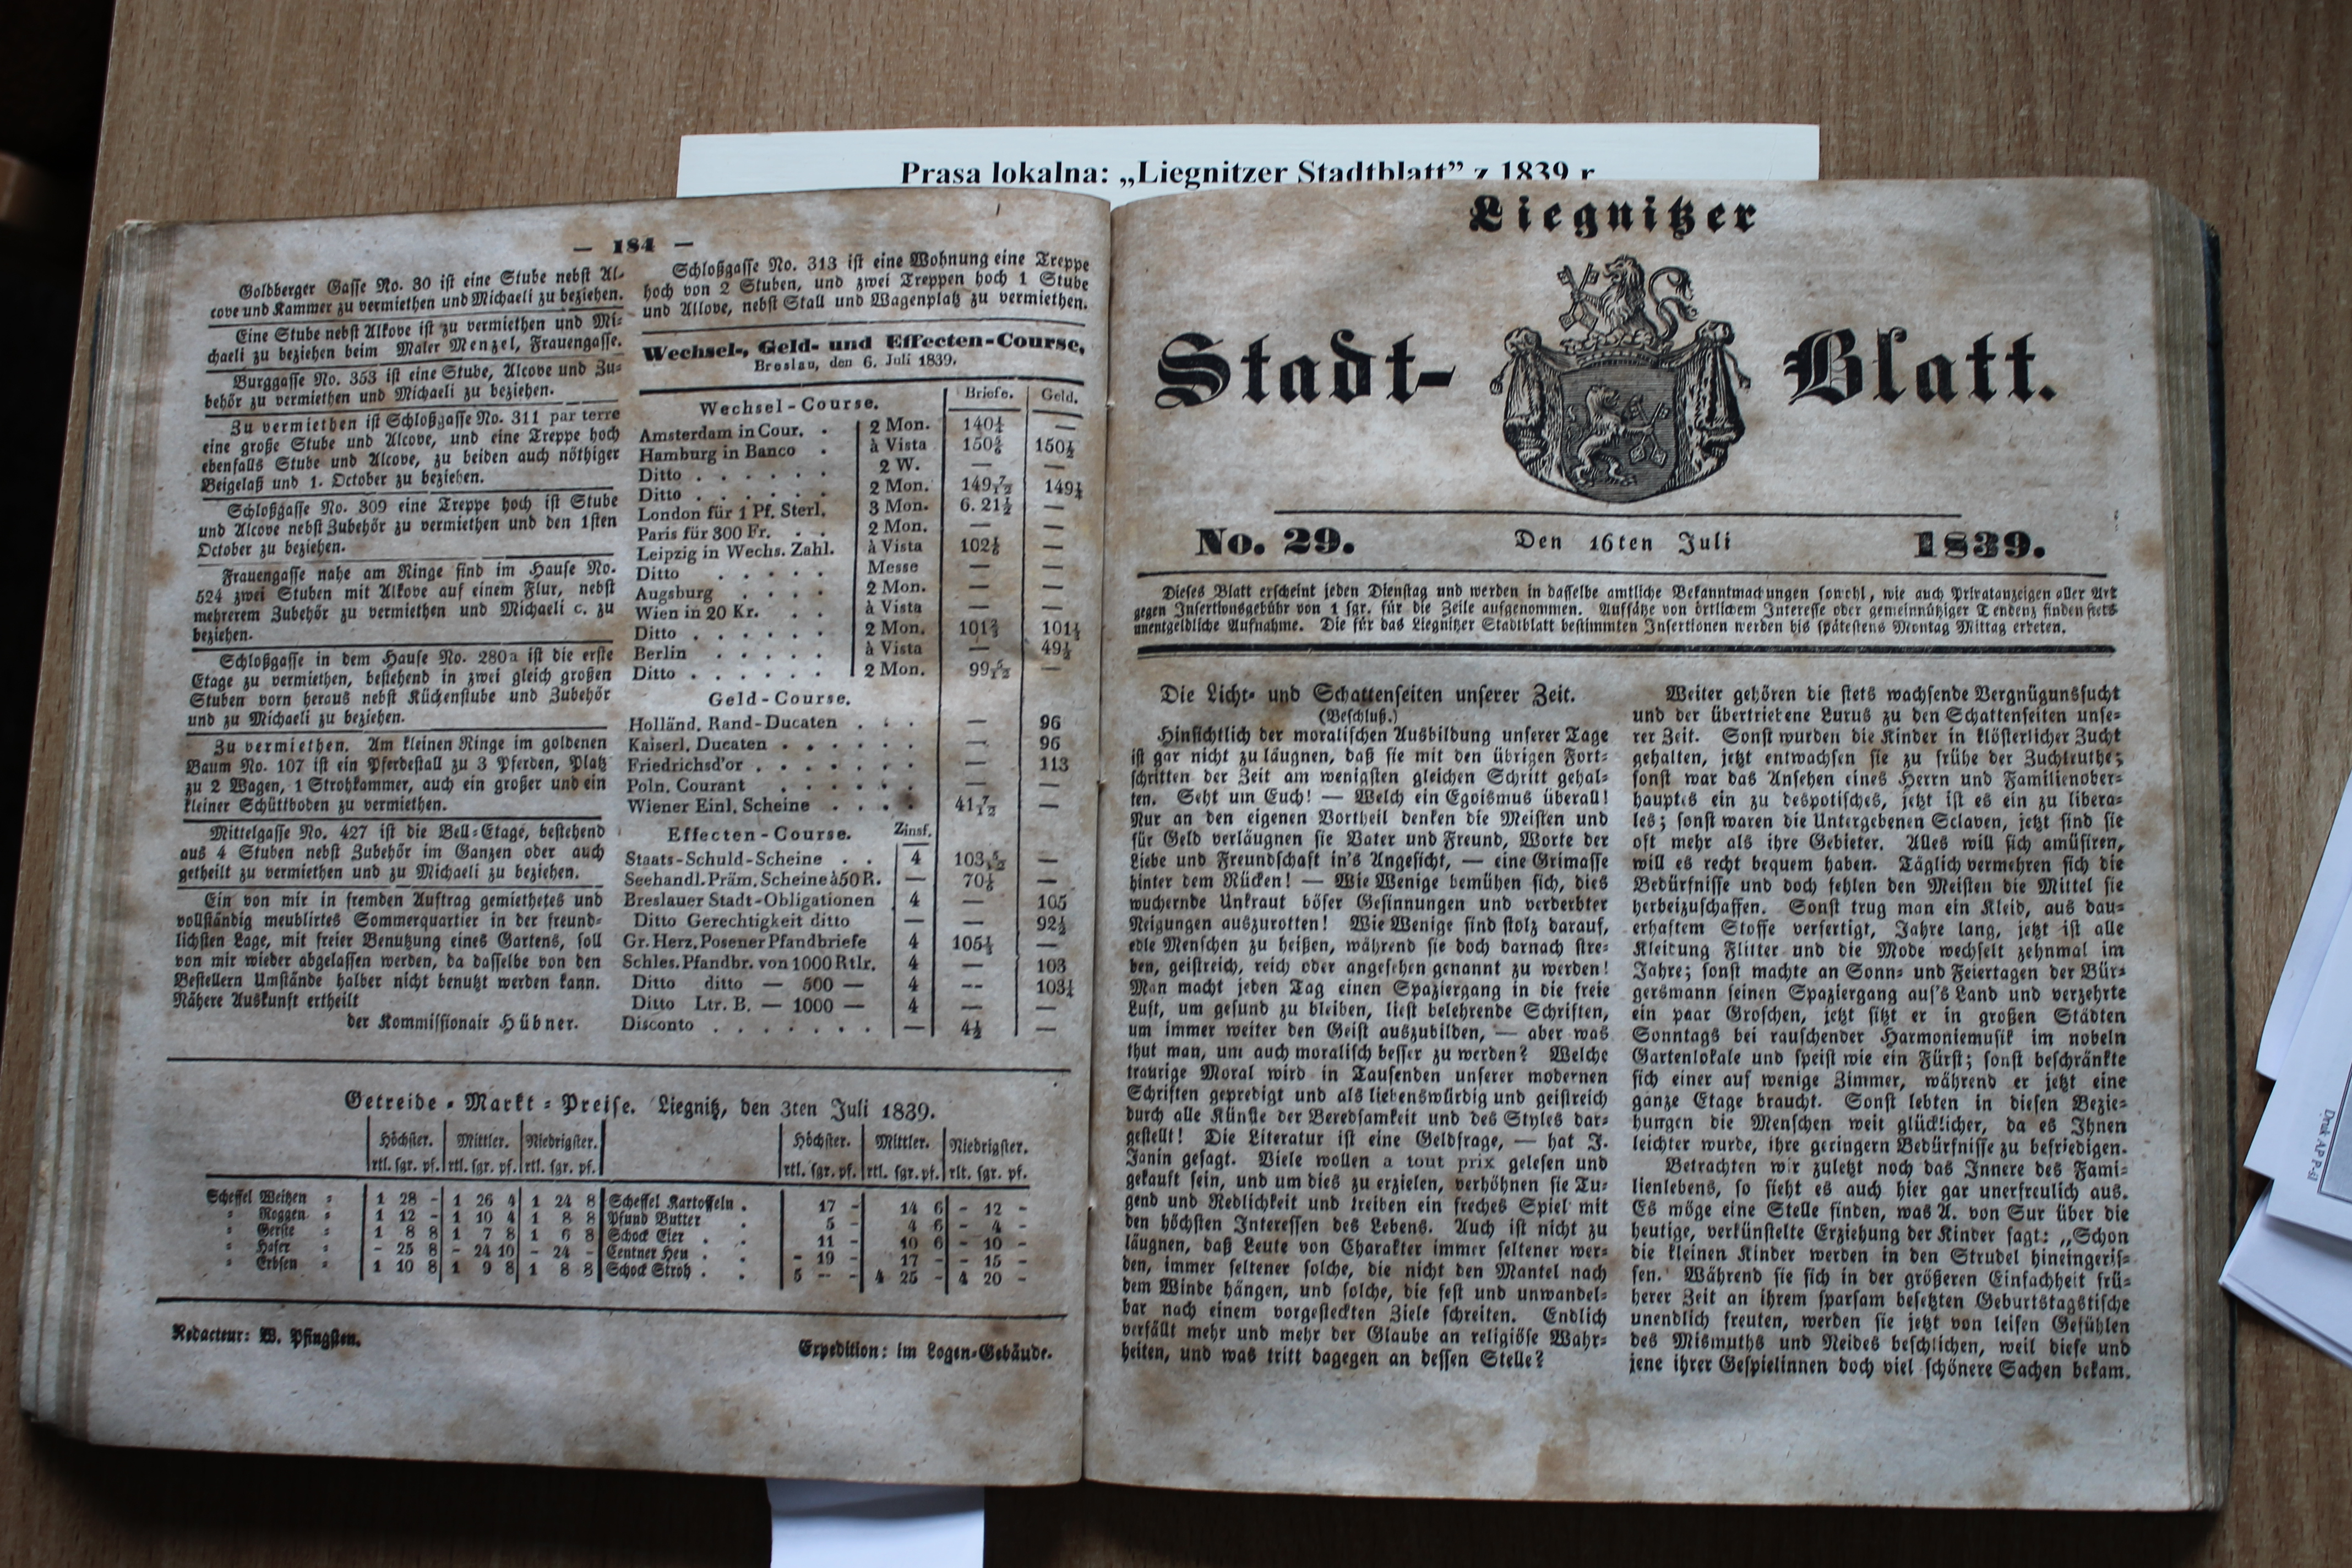 Prasa lokalna: „Liegnitzer Stadtblatt” z 1839 r.
— 184 —
Goldberger Gasse No. 30 ist eine Stube nebst Al-
cove und Kammer zu vermiethen und Michaeli zu beziehen.
Eine Stube nebst Alkove ist zu vermiethen und Mi-
chaeli zu beziehen beim Maler Menzel, Frauengasse.
Burggasse No. 353 ist eine Stube, Alcove und Zu-
behör zu vermiethen und Michaeli zu beziehen.
Zu vermiethen ist Schloßgasse No. 311 par terre
eine große Stube und Alcove, und eine Treppe hoch
ebenfalls Stube und Alcove, zu beiden auch nöthiger
Beigelaß und 1. October zu beziehen.
Schloßgasse No. 309 eine Treppe hoch ist Stube
und Alcove nebst Zubehör zu vermiethen und den 1sten
October zu beziehen.
Frauengasse nahe am Ringe sind im Hause No.
524 zwei Stuben mit Alkove auf einem Flur, nebst
mehrerem Zubehör zu vermiethen und Michaeli c. zu
beziehen.
Schloßgasse in dem Hause No. 280a ist die erste
Etage zu vermiethen, bestehend in zwei gleich großen
Stuben vorn heraus nebst Küchenstube und Zubehör
und zu Michaeli zu beziehen.
Zu vermiethen. Am kleinen Ringe im goldenen
Baum No. 107 ist ein Pferdestall zu 3 Pferden, Platz
zu 2 Wagen, 1 Strohkammer, auch ein großer und ein
kleiner Schüttboden zu vermiethen.
Mittelgasse No. 427 ist die Bell-Etage, bestehend
aus 4 Stuben nebst Zubehör im Ganzen oder auch
getheilt zu vermiethen und zu Michaeli zu beziehen.
Ein von mir in fremden Auftrag gemiethetes und
vollständig meublirtes Sommerquartier in der freund-
lichsten Lage, mit freier Benutzung eines Gartens, soll
von mir wieder abgelassen werden, da dasselbe von den
Bestellern Umstände halber nicht benutzt werden kann.
Nähere Auskunft ertheilt
der Kommissionair Hübner.
Schloßgasse No. 313 ist eine Wohnung eine Treppe
hoch von 2 Stuben, und zwei Treppen hoch 1 Stube
und Allove, nebst Stall und Wagenplatz zu vermiethen.
Wechsel-, Geld- und Effecten-Course,
Breslau, den 6. Juli 1839.
Wechsel-Course. Briefe. Geld.
Amsterdam in Cour. . 2 Mon. 140¼ —
Hamburg in Banco . à Vista 150⅔ 150½
Ditto . . . . . . 2 W. — —
Ditto . . . . . . 2 Mon. 149 7/12 149¼
London für 1 Pf. Sterl. 3 Mon. 6. 21½ —
Paris für 300 Fr. . . 2 Mon. — —
Leipzig in Wechs. Zahl. à Vista 102⅙ —
Ditto . . . . . Messe — —
Augsburg . . . . 2 Mon. — —
Wien in 20 Kr. . . à Vista — —
Ditto . . . . . . 2 Mon. 101⅔ 101⅓
Berlin . . . . . à Vista — 49½
Ditto . . . . . . 2 Mon. 99 5/12 —
Geld-Course.
Holländ. Rand-Ducaten . . . — 96
Kaiserl. Ducaten . . . . . . — 96
Friedrichsd'or . . . . . . . — 113
Poln. Courant . . . . . . — —
Wiener Einl. Scheine . . . . 41 7/12 —
Effecten-Course. Zinsf.
Staats-Schuld-Scheine . . 4 103 5/12 —
Seehandl. Präm. Scheine à 50 R. — 70⅙ —
Breslauer Stadt-Obligationen 4 — 105
Ditto Gerechtigkeit ditto — — 92½
Gr. Herz. Posener Pfandbriefe 4 105⅓ —
Schles. Pfandbr. von 1000 Rtlr. 4 — 103
Ditto ditto — 500 — 4 -- 103¼
Ditto Ltr. B. — 1000 — 4 — —
Disconto . . . . . . . — 4½ —
Getreide-Markt-Preise. Liegnitz, den 3ten Juli 1839.
Höchster. Mittler. Niedrigster. Höchster. Mittler. Niedrigster.
rtl. sgr. pf. rtl. sgr. pf. rtl. sgr. pf. rtl. sgr. pf. rtl. sgr. pf. rlt. sgr. pf.
Scheffel Weitzen = 1 28 - 1 26 4 1 24 8 Scheffel Kartoffeln . 17 - 14 6 - 12 -
= Roggen = 1 12 - 1 10 4 1 8 8 Pfund Butter . 5 - 4 6 - 4 -
= Gerste = 1 8 8 1 7 8 1 6 8 Schock Eier . . 11 - 10 6 - 10 -
= Hafer = - 25 8 - 24 10 - 24 - Centner Heu . . - 19 - 17 - - 15 -
= Erbsen = 1 10 8 1 9 8 1 8 8 Schock Stroh . . 5 -- - 4 25 - 4 20 -
Redacteur: W. Pfingsten.
Expedition: im Logen-Gebäude.
Liegnitzer
Stadt-Blatt.
No. 29. Den 16ten Juli 1839.
Dieses Blatt erscheint jeden Dienstag und werden in dasselbe amtliche Bekanntmachungen sowohl, wie auch Privatanzeigen aller Art
gegen Insertionsgebühr von 1 sgr. für die Zeile aufgenommen. Aufsätze von örtlichem Interesse oder gemeinnütziger Tendenz finden stets
unentgeldliche Aufnahme. Die für das Liegnitzer Stadtblatt bestimmten Insertionen werden bis spätestens Montag Mittag erbeten.
Die Licht- und Schattenseiten unserer Zeit.
(Beschluß.)
Hinsichtlich der moralischen Ausbildung unserer Tage
ist gar nicht zu läugnen, daß sie mit den übrigen Fort-
schritten der Zeit am wenigsten gleichen Schritt gehal-
ten. Seht um Euch! — Welch ein Egoismus überall!
Nur an den eigenen Vortheil denken die Meisten und
für Geld verläugnen sie Vater und Freund, Worte der
Liebe und Freundschaft in's Angesicht, — eine Grimasse
hinter dem Rücken! — Wie Wenige bemühen sich, dies
wuchernde Unkraut böser Gesinnungen und verderbter
Neigungen auszurotten! Wie Wenige sind stolz darauf,
edle Menschen zu heißen, während sie doch darnach stre-
ben, geistreich, reich oder angesehen genannt zu werden!
Man macht jeden Tag einen Spaziergang in die freie
Luft, um gesund zu bleiben, liest belehrende Schriften,
um immer weiter den Geist auszubilden, — aber was
thut man, um auch moralisch besser zu werden? Welche
traurige Moral wird in Tausenden unserer modernen
Schriften gepredigt und als liebenswürdig und geistreich
durch alle Künste der Beredsamkeit und des Styles dar-
gestellt! Die Literatur ist eine Geldfrage, — hat J.
Janin gesagt. Viele wollen a tout prix gelesen und
gekauft sein, und um dies zu erzielen, verhöhnen sie Tu-
gend und Redlichkeit und treiben ein freches Spiel mit
den höchsten Interessen des Lebens. Auch ist nicht zu
läugnen, daß Leute von Charakter immer seltener wer-
den, immer seltener solche, die nicht den Mantel nach
dem Winde hängen, und solche, die fest und unwandel-
bar nach einem vorgesteckten Ziele schreiten. Endlich
verfällt mehr und mehr der Glaube an religiöse Wahr-
heiten, und was tritt dagegen an dessen Stelle?
Weiter gehören die stets wachsende Vergnügunssucht
und der übertriebene Luxus zu den Schattenseiten unse-
rer Zeit. Sonst wurden die Kinder in klösterlicher Zucht
gehalten, jetzt entwachsen sie zu frühe der Zuchtruthe;
sonst war das Ansehen eines Herrn und Familienober-
hauptes ein zu despotisches, jetzt ist es ein zu libera-
les; sonst waren die Untergebenen Sclaven, jetzt sind sie
oft mehr als ihre Gebieter. Alles will sich amüsiren,
will es recht bequem haben. Täglich vermehren sich die
Bedürfnisse und doch fehlen den Meisten die Mittel sie
herbeizuschaffen. Sonst trug man ein Kleid, aus dau-
erhaftem Stoffe verfertigt, Jahre lang, jetzt ist alle
Kleidung Flitter und die Mode wechselt zehnmal im
Jahre; sonst machte an Sonn- und Feiertagen der Bür-
gersmann seinen Spaziergang auf's Land und verzehrte
ein paar Groschen, jetzt sitzt er in großen Städten
Sonntags bei rauschender Harmoniemusik im nobeln
Gartenlokale und speist wie ein Fürst; sonst beschränkte
sich einer auf wenige Zimmer, während er jetzt eine
ganze Etage braucht. Sonst lebten in diesen Bezie-
hungen die Menschen weit glücklicher, da es Ihnen
leichter wurde, ihre geringern Bedürfnisse zu befriedigen.
Betrachten wir zuletzt noch das Innere des Fami-
lienlebens, so sieht es auch hier gar unerfreulich aus.
Es möge eine Stelle finden, was A. von Sur über die
heutige, verkünstelte Erziehung der Kinder sagt: „Schon
die kleinen Kinder werden in den Strudel hineingeris-
sen. Während sie sich in der größeren Einfachheit frü-
herer Zeit an ihrem sparsam besetzten Geburtstagstische
unendlich freuten, werden sie jetzt von leisen Gefühlen
des Mismuths und Neides beschlichen, weil diese und
jene ihrer Gespielinnen doch viel schönere Sachen bekam.